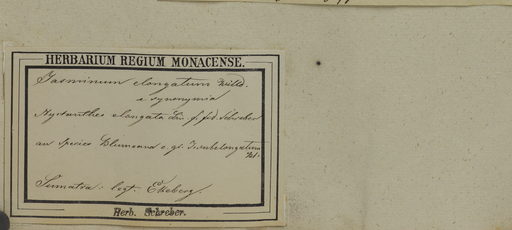 HERBARIUM REGIUM MONACENSE.
Jasminum elongatum Willd.
e synonymia
Nyctanthes elongata Lin. f. fid. Schreber
an species Blumeana e. gr. J. subelongatum
Sumatra: legt. Ekeberg.
Herb. Schreber.